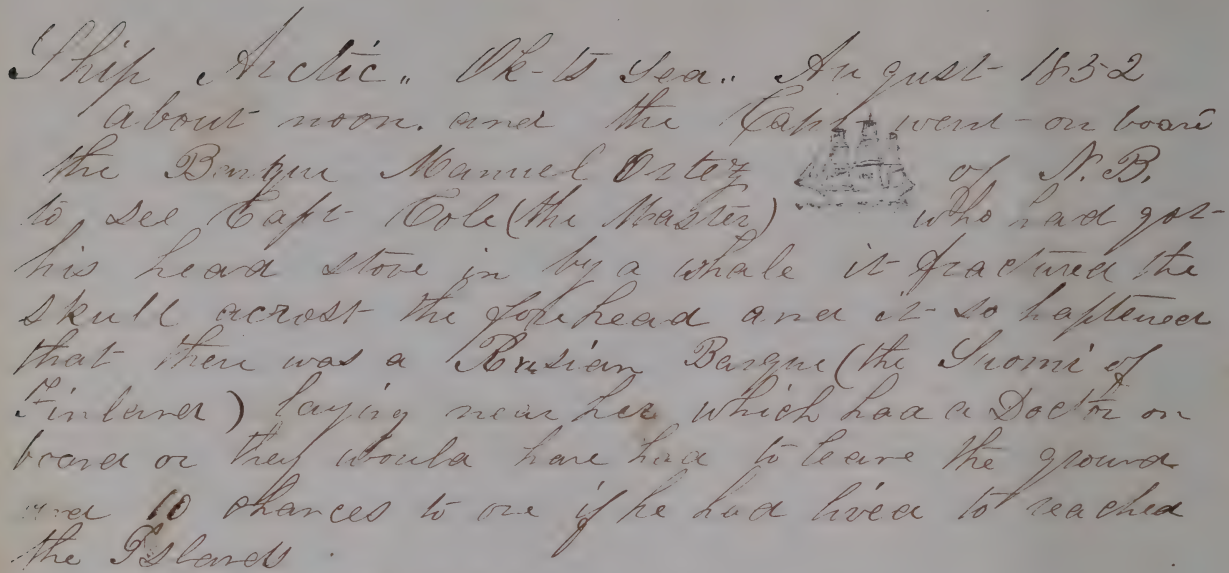 Ship Arctic,, Ok-ts Sea,, August 1852
about noon. and the Capt went on board
the Barque Manuel Ortez of N.B.
to see Capt Cole (the Master) who had got
his head stove in by a whale it fractured the
skull acrost the forehead and it so haptened
that there was a Rusian Barque (the Suomi of
Finland) laying near her which had a Doctor on
board or they would have had to leave the ground
and 10 chances to one if he had lived to reached
the Islands.